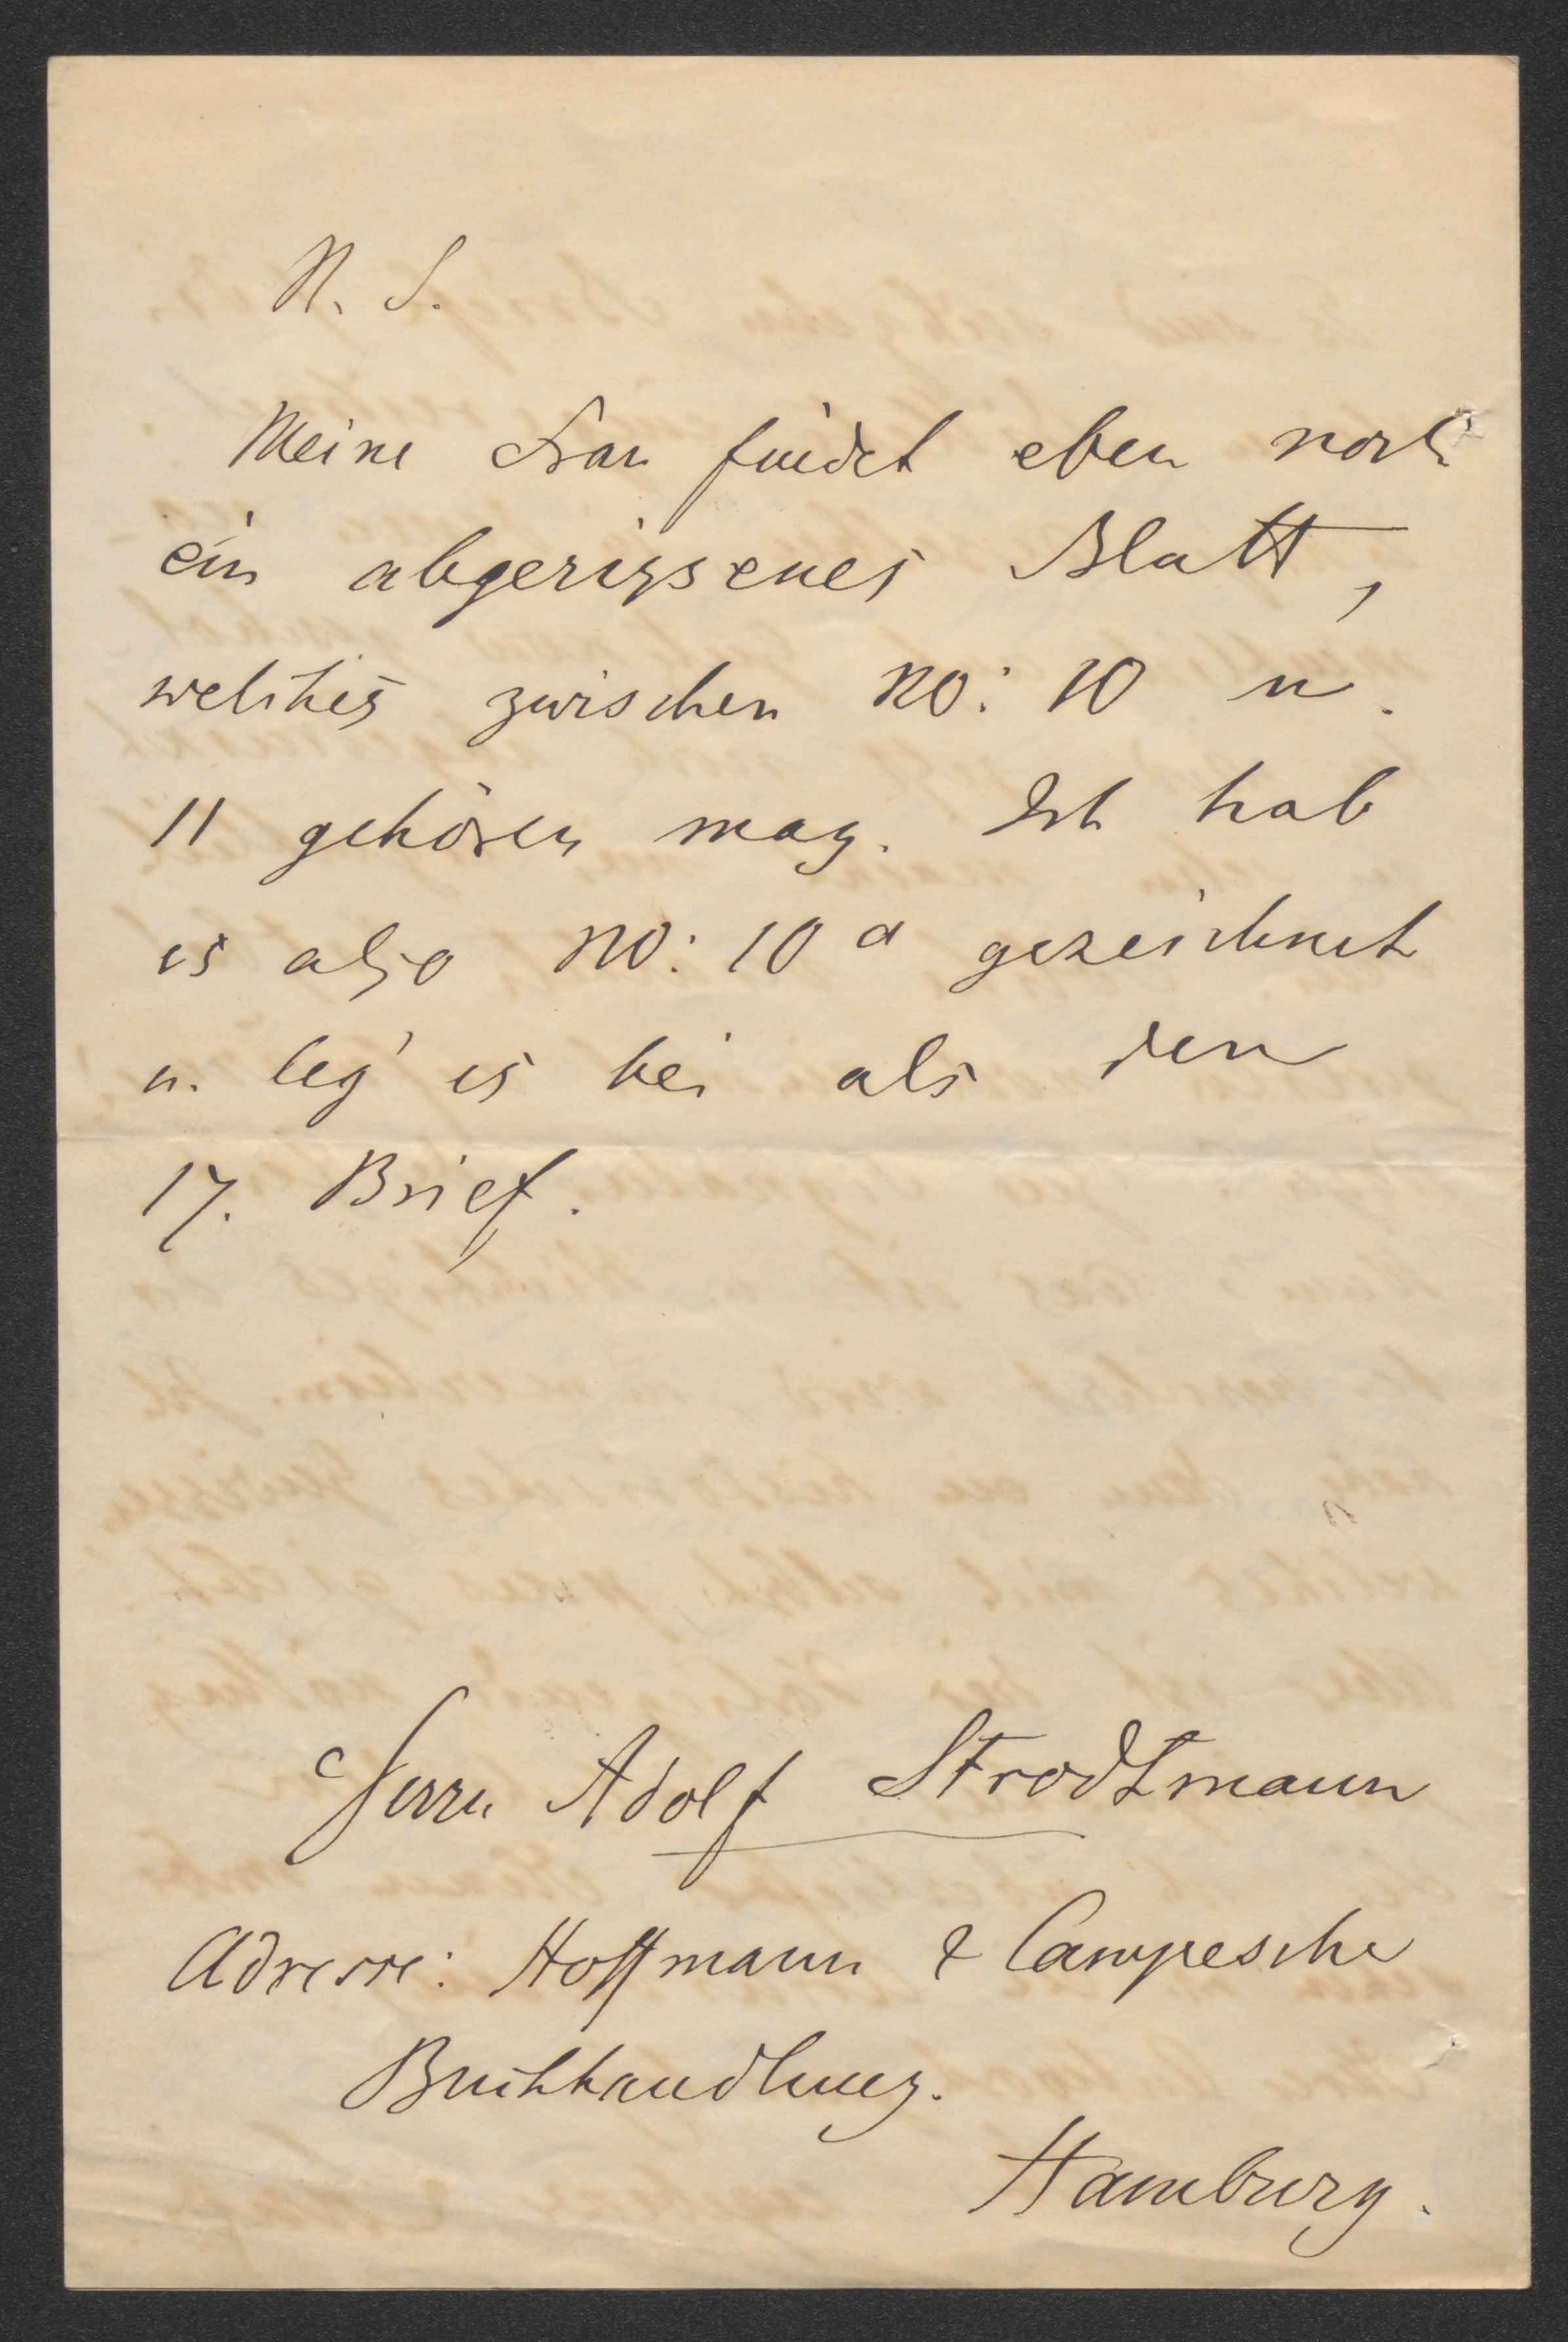 N. S.
Meine Frau findet eben noch
ein abgerissenes Blatt,
welches zwischen No: 10 u.
11 gehören mag. Ich hab
es also No: 10 a gezeichnet
u. leg' es bei als den
17. Brief.
Herrn Adolf Strodtmann
Adresse: Hoffmann & Campesche
Buchhandlung.
Hamburg.